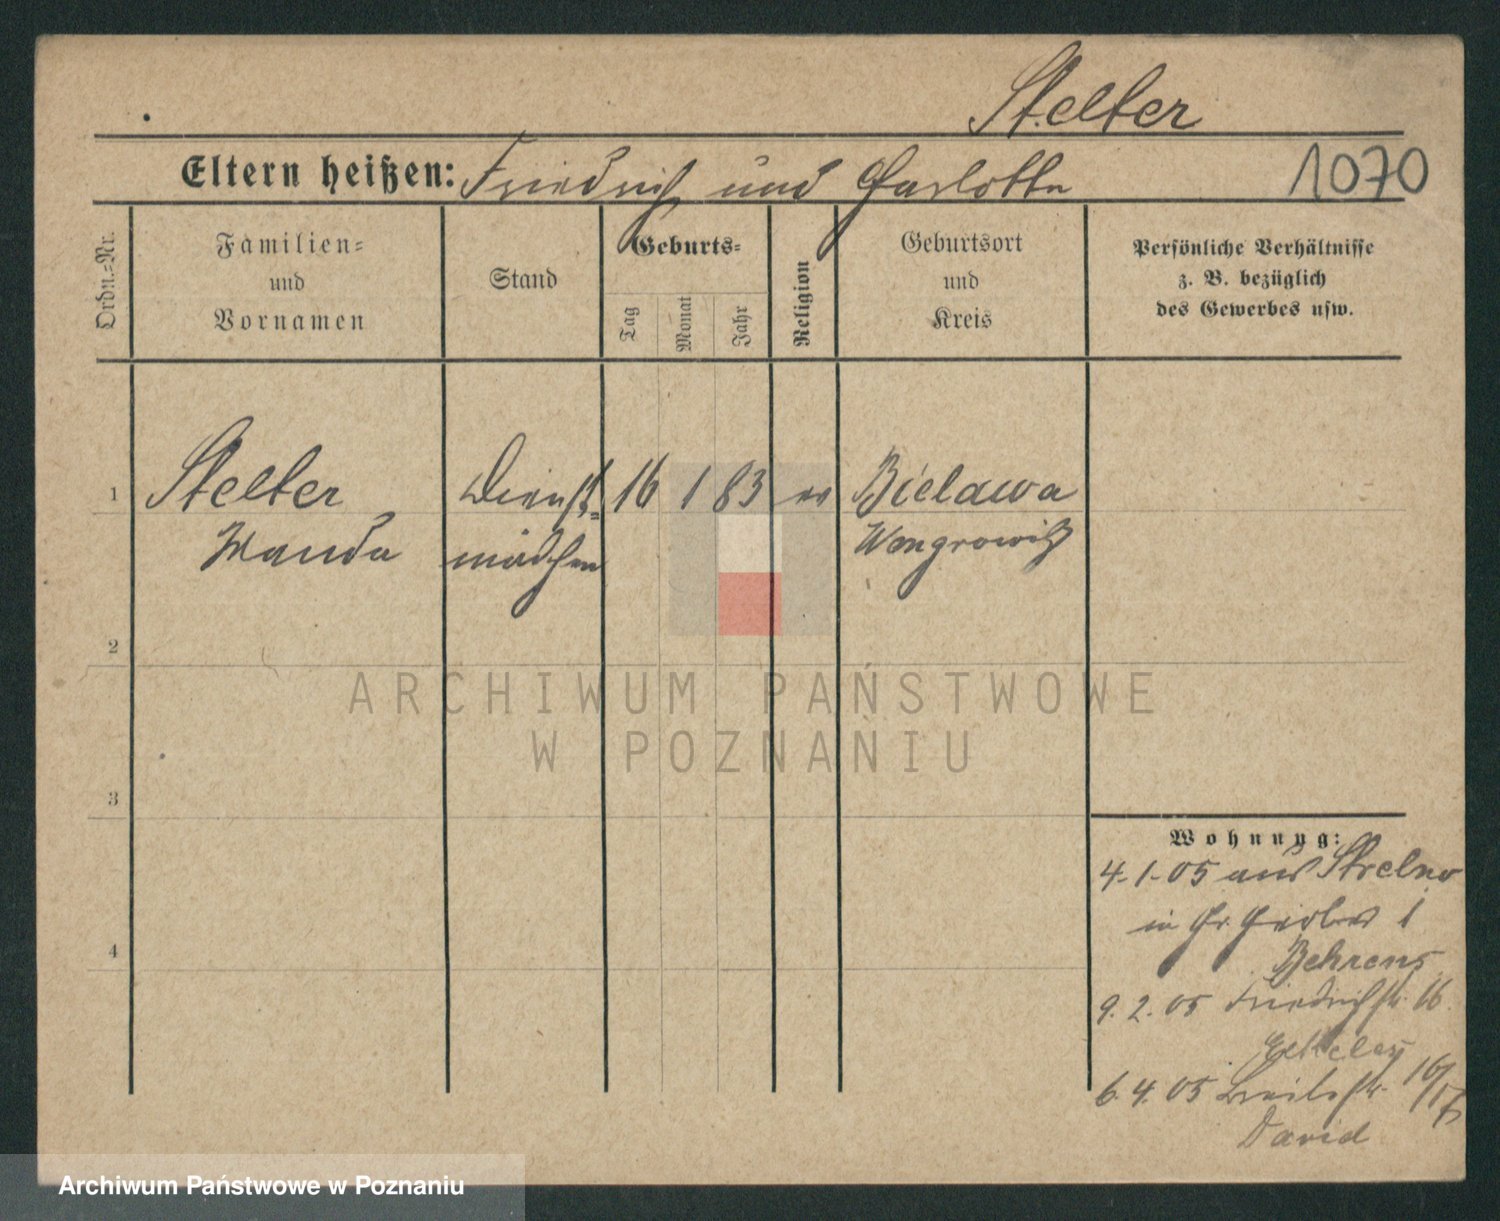 Stelter
Eltern heißen: Friedrich und Charlotte
1070
Ordn.-Nr.
Familien-
und
Vornamen
Stand
Geburts-
Tag
Monat
Jahr
Religion
Geburtsort
und
Kreis
Persönliche Verhältnisse
z. B. bezüglich
des Gewerbes usw.
1
Stelter
Wanda
Dienst-
mädchen
16 1 83
ev
Bielawa
Wongrowitz
2
ARCHIWUM PAŃSTWOWE
W POZNANIU
3
4
Wohnung:
4.1.05 aus Strelno
in Gr. 1
Behrens
9.2.05 Friedrichstr. 16
6.4.05 Breitestr. 16/17
David
Archiwum Państwowe w Poznaniu